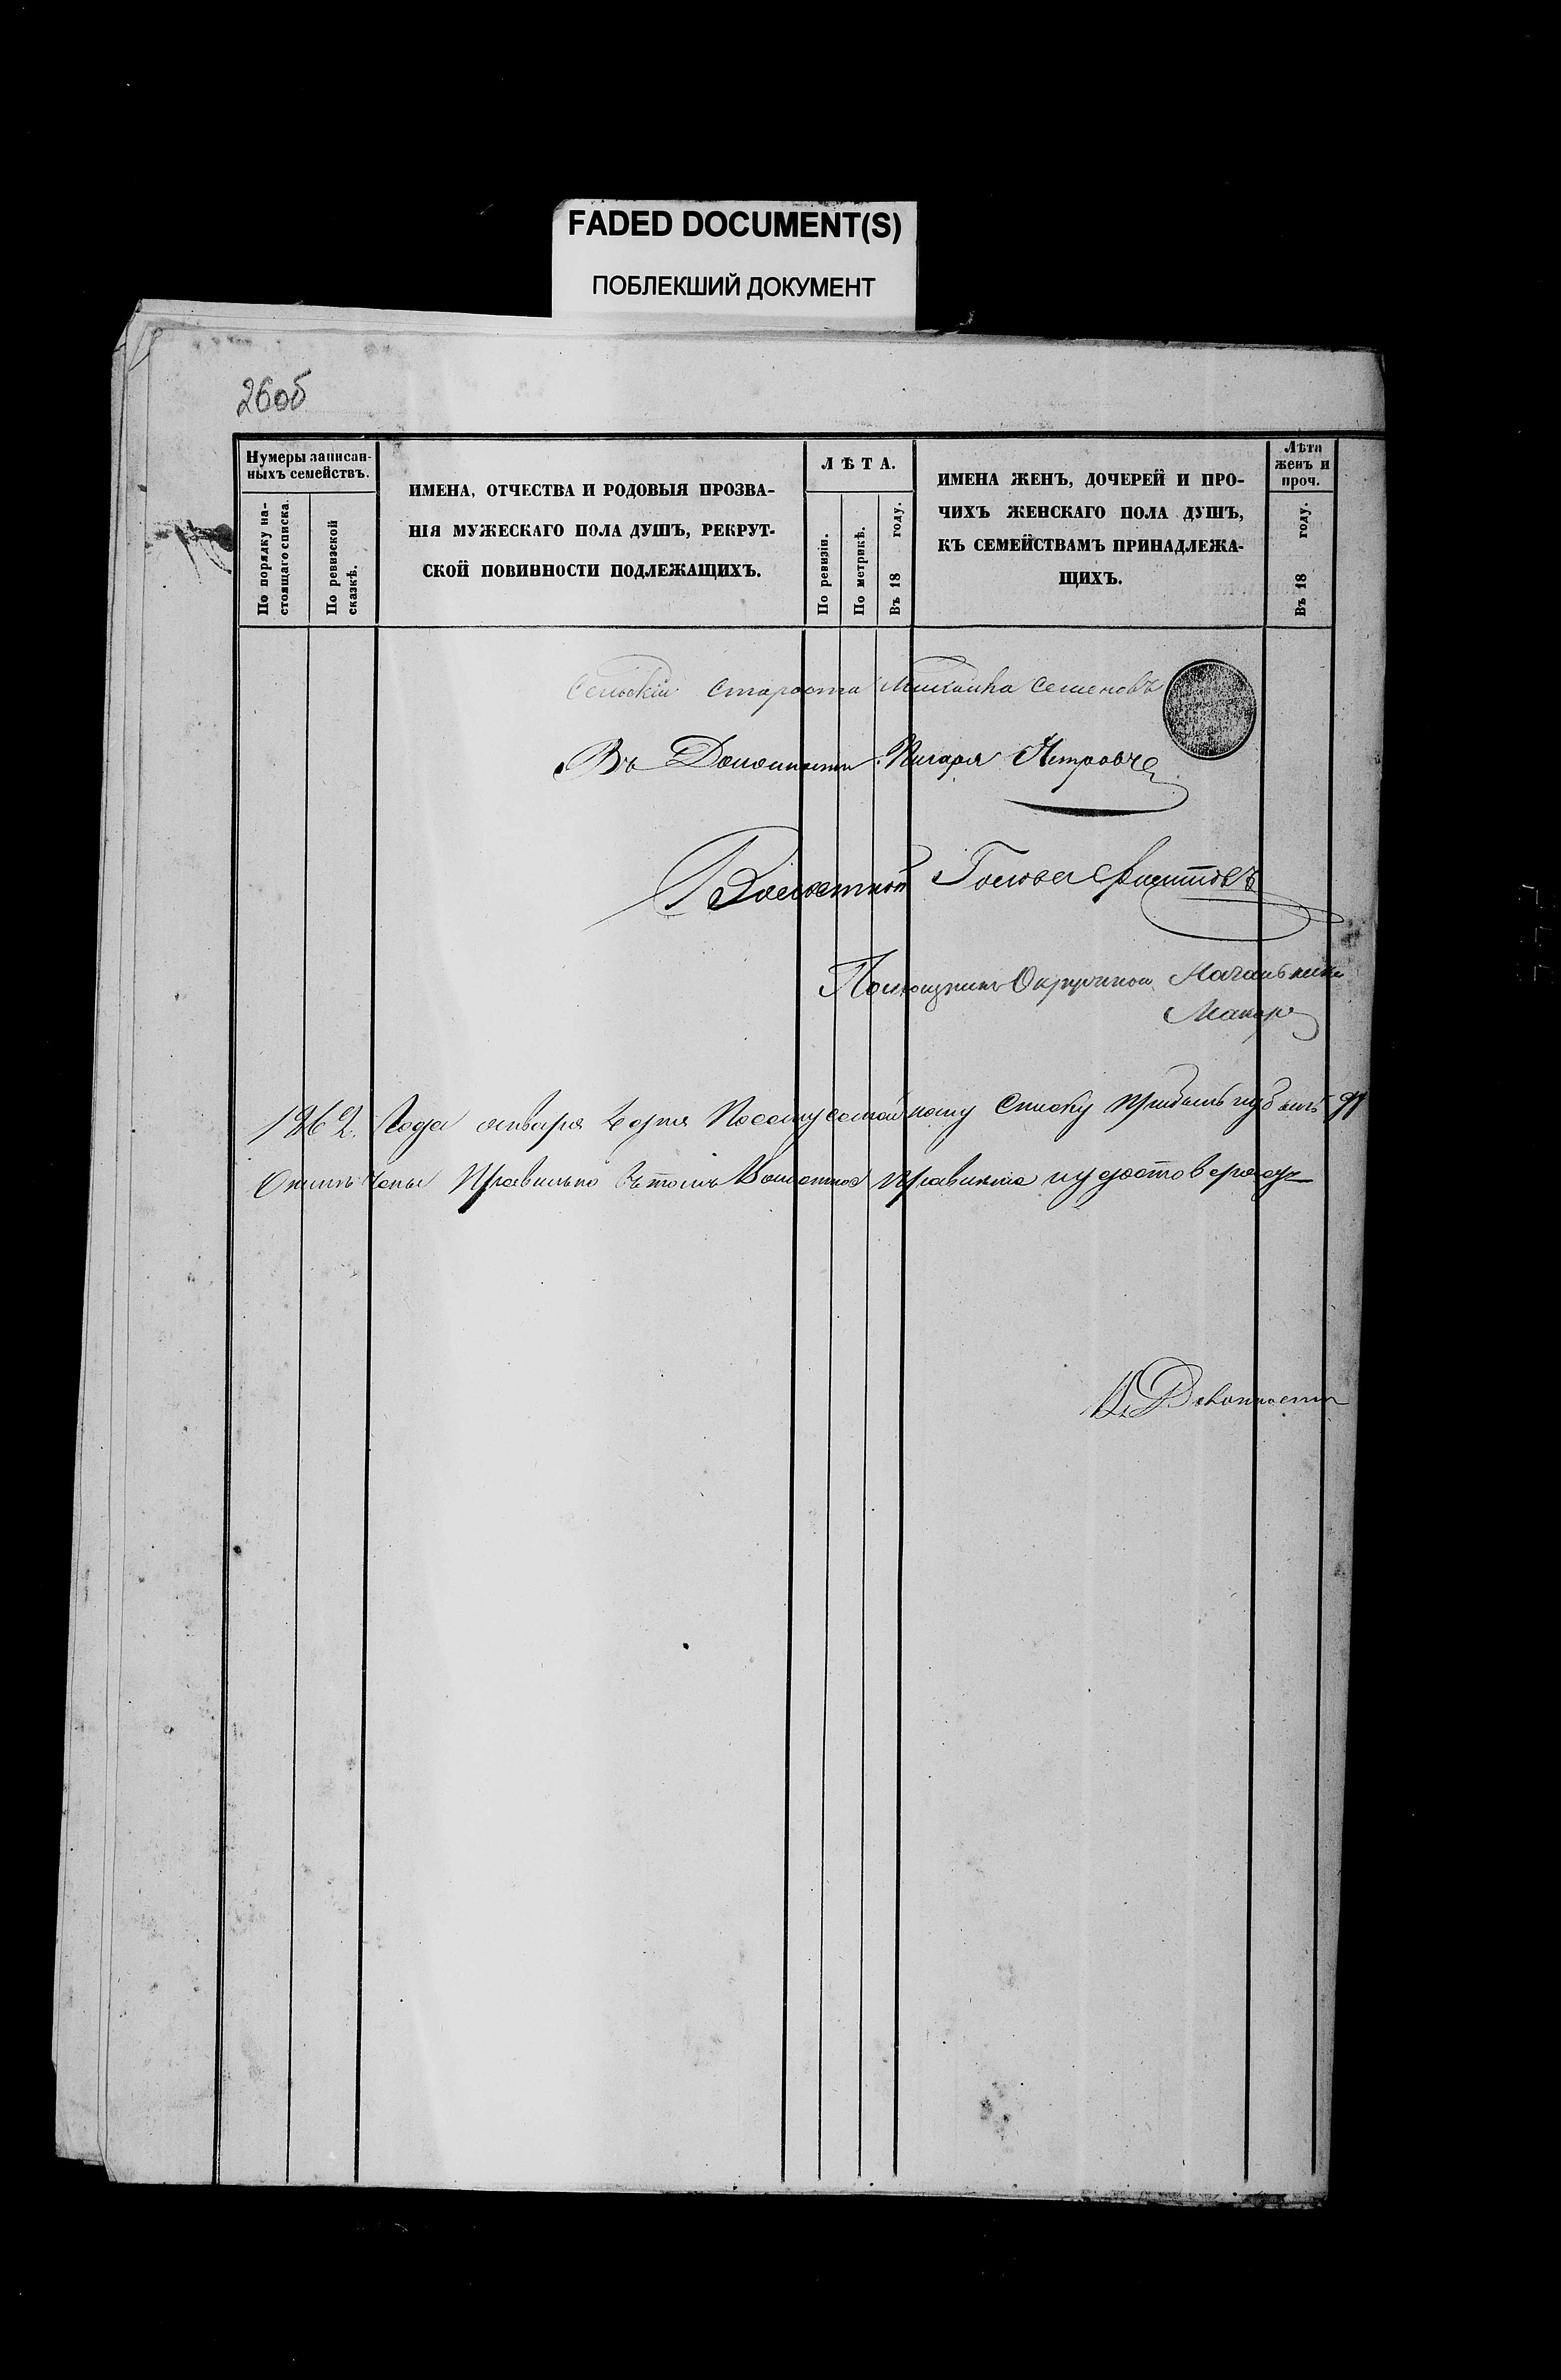 FADED DOCUMENT(S)
ПОБЛЕКШИЙ ДОКУМЕНТ
260б
Нумеры записан-
ныхъ семействъ.
По порядку на-
стоящаго списка.
По ревизской
сказкѣ.
ИМЕНА, ОТЧЕСТВА И РОДОВЫЯ ПРОЗВА-
НІЯ МУЖЕСКАГО ПОЛА ДУШЪ, РЕКРУТ-
СКОЙ ПОВИННОСТИ ПОДЛЕЖАЩИХЪ.
ЛѢТА.
По ревизіи.
По метрикѣ.
Въ 18 году.
ИМЕНА ЖЕНЪ, ДОЧЕРЕЙ И ПРО-
ЧИХЪ ЖЕНСКАГО ПОЛА ДУШЪ,
КЪ СЕМЕЙСТВАМЪ ПРИНАДЛЕЖА-
ЩИХЪ.
Лѣта
женъ и
проч.
Въ 18 году.
Сельскій Староста Семеновъ
Въ Должности Писаря
Волостной Голова
Помощникъ Окружнаго Начальника
Маіоръ
1862 Года января дня По сему Семейному Списку Прибыль и убыль
Правильно въ томъ Волостное Правленіе и удостоверяетъ
Должности